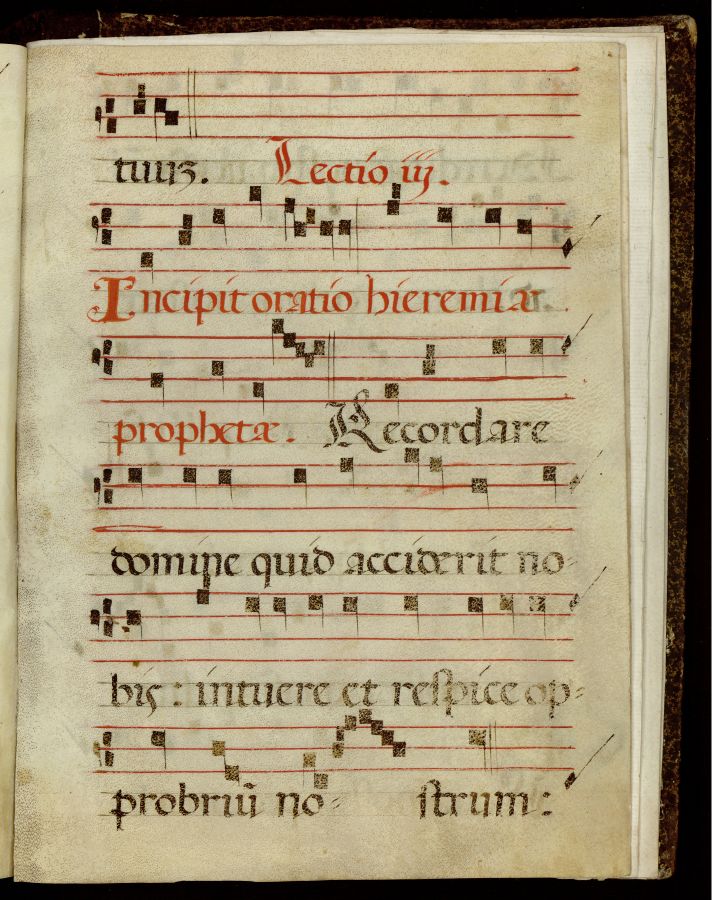 tuus. Lectio iij.
Incipit oratio hieremiæ
prophetæ. Recordare
domine quid acciderit no-
bis: intuere et respice op-
probriũ no- strum: